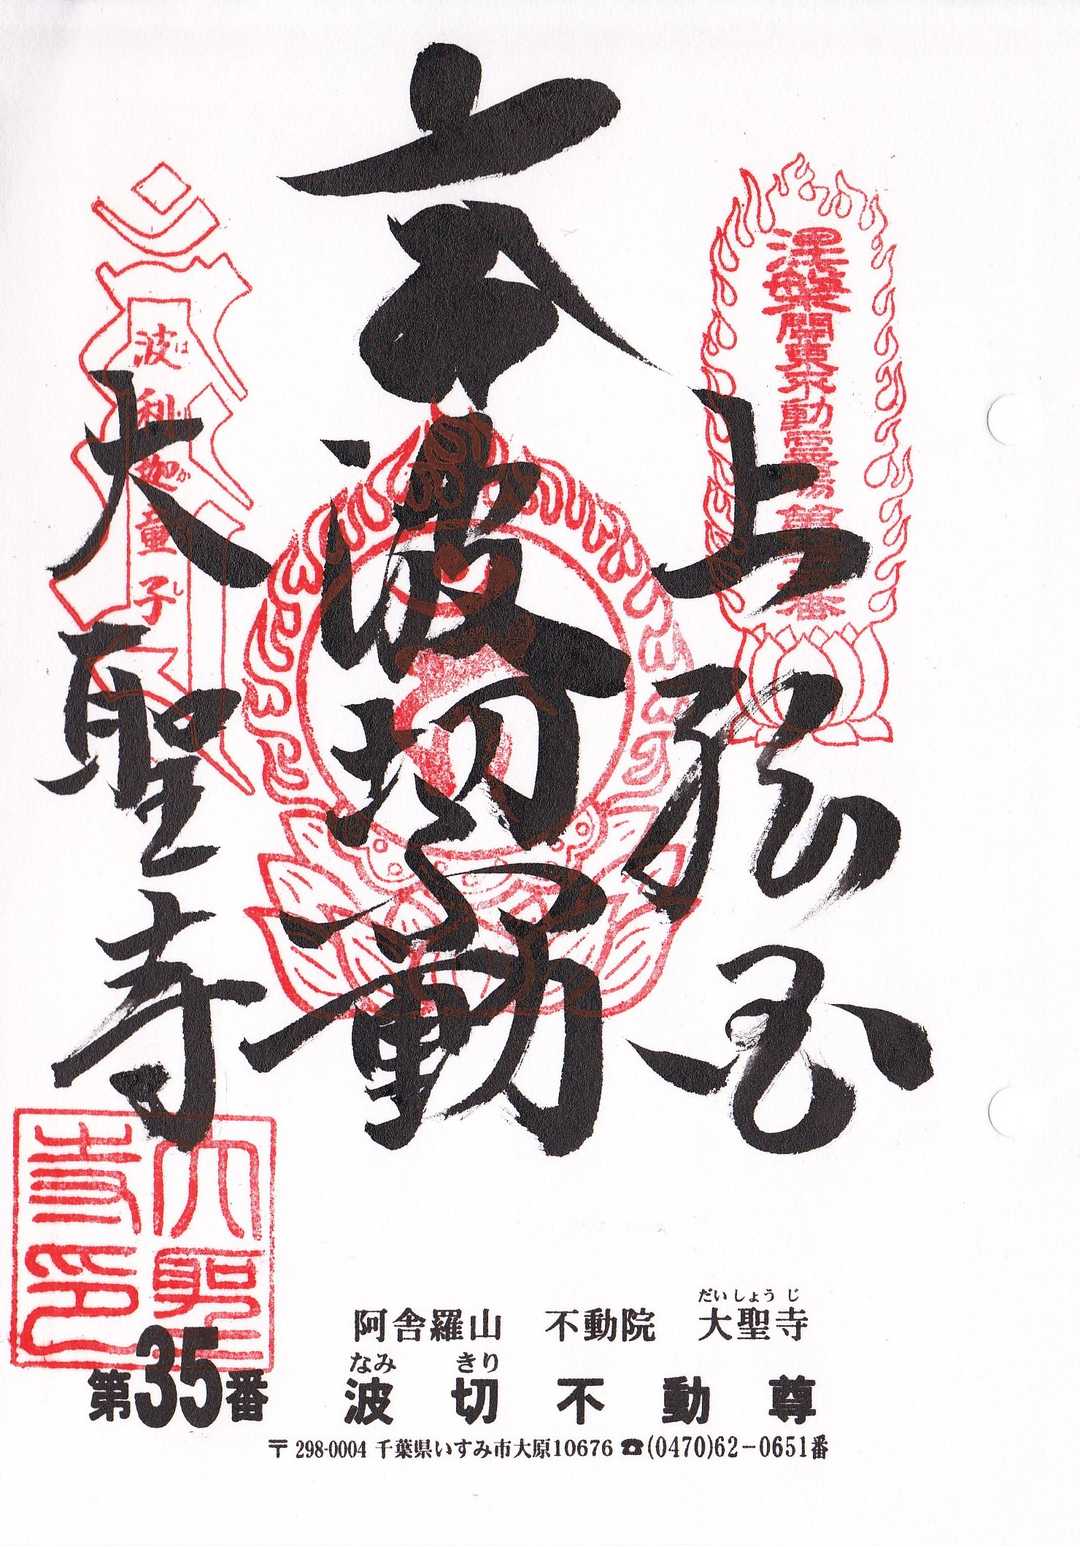 涅槃關東不動霊場第 番
上総国
波切不動
波利迦童子
大聖寺
大聖寺印
だいしょうじ
阿舎羅山 不動院 大聖寺
なみ きり
第35番 波切不動尊
〒298-0004 千葉県いすみ市大原10676 ☎(0470)62-0651番